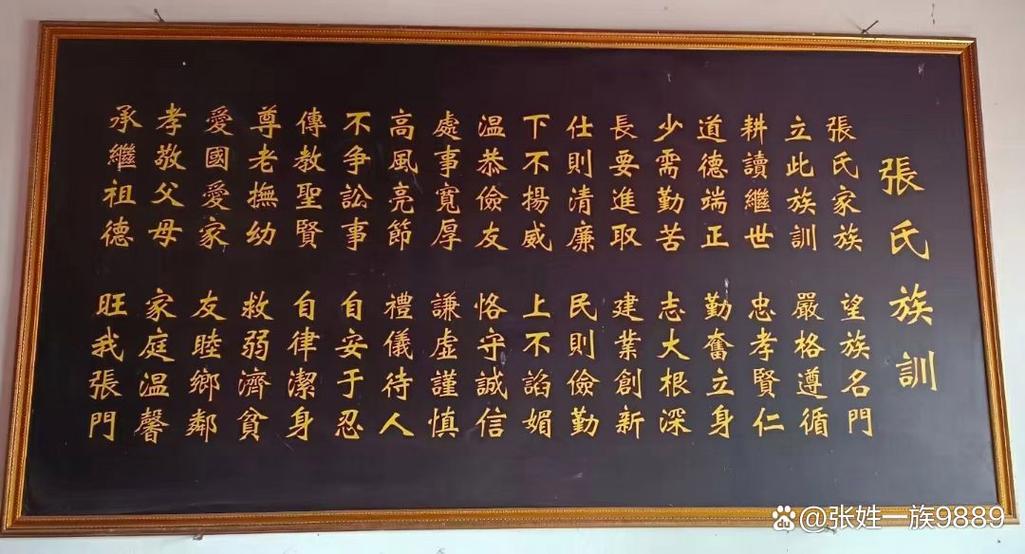 張氏族訓
張氏家族 望族名門
立此族訓 嚴格遵循
耕讀繼世 忠孝賢仁
道德端正 勤奮立身
少需勤苦 志大根深
長要進取 建業創新
仕則清廉 民則儉勤
下不揚威 上不諂媚
溫恭儉友 恪守誠信
處事寬厚 謙虛謹慎
高風亮節 禮儀待人
不争訟事 自安于忍
傳教聖賢 自律潔身
尊老撫幼 救弱濟貧
愛國愛家 友睦鄉鄰
孝敬父母 家庭溫馨
承繼祖德 旺我張門
@张姓一族9889